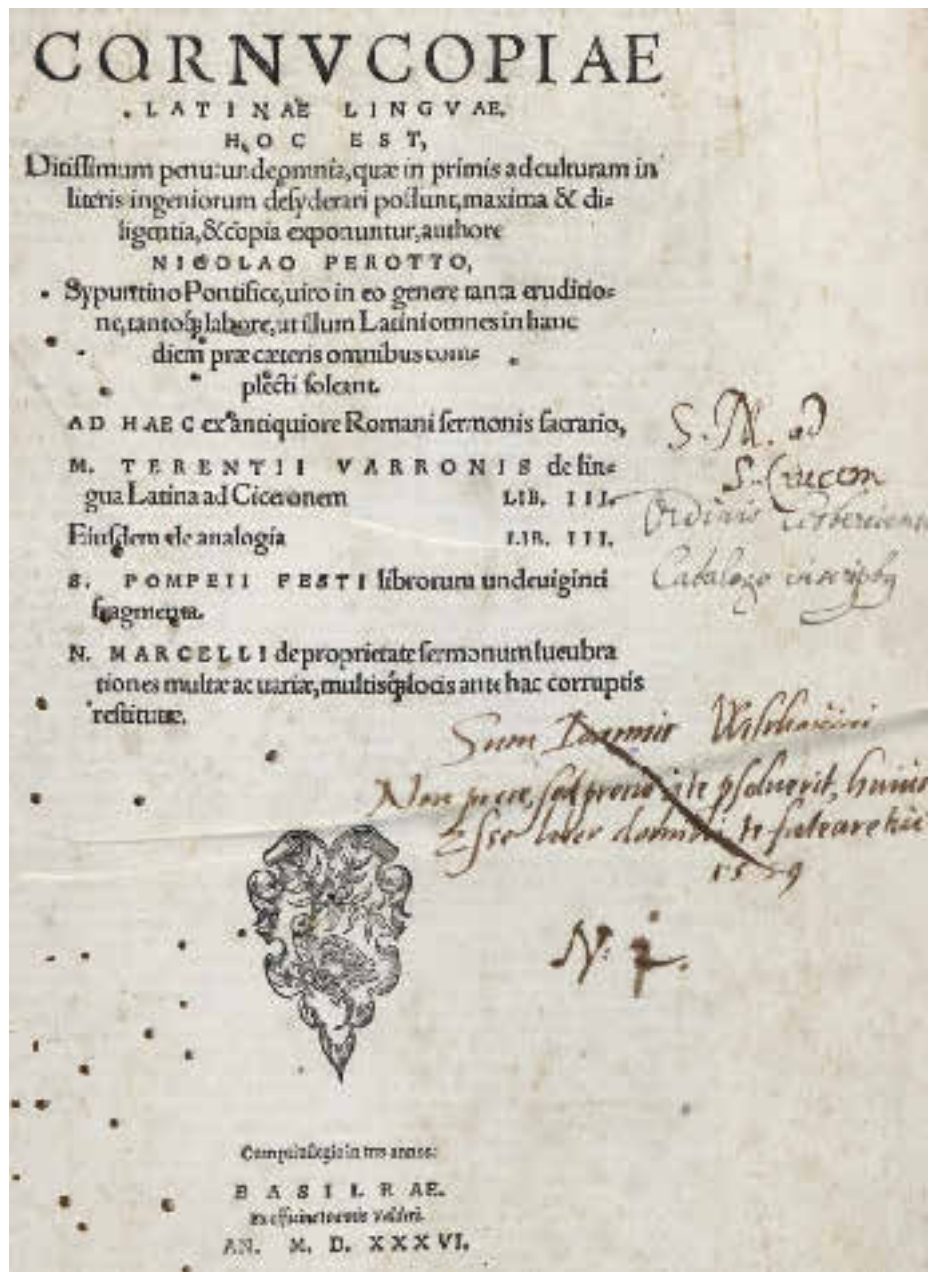 CORNVCOPIAE
LATINAE LINGVAE.
HOC EST,
Ditissimum penu: unde omnia, quæ in primis ad culturam in
literis ingeniorum desyderari possunt, maxima & di=
ligentia, & copia exponuntur, authore
NICOLAO PEROTTO,
Sypuntino Pontifice, uiro in eo genere tanta eruditio=
ne, tantoq́; labore, ut illum Latini omnes in hanc
diem præ cæteris omnibus com=
plecti soleant.
AD HAEC ex antiquiore Romani sermonis sacrario,
M. TERENTII VARRONIS de lin=
gua Latina ad Ciceronem LIB. III.
Eiusdem de analogia LIB. III.
S. POMPEII FESTI librorum undeuiginti
fragmenta.
N. MARCELLI de proprietate sermonum lucubra
tiones multæ ac uariæ, multisq́; locis ante hac corruptis
restitutæ.
S. M. ad
S. Crucem
Ordinis
Catalogo inscriptus
Sum Joannis
Non prece, sed precio huius
Esse
15 9
N. 2.
in tres annos:
BASILEAE.
Ex officina Ioannis Valderi.
AN. M. D. XXXVI.